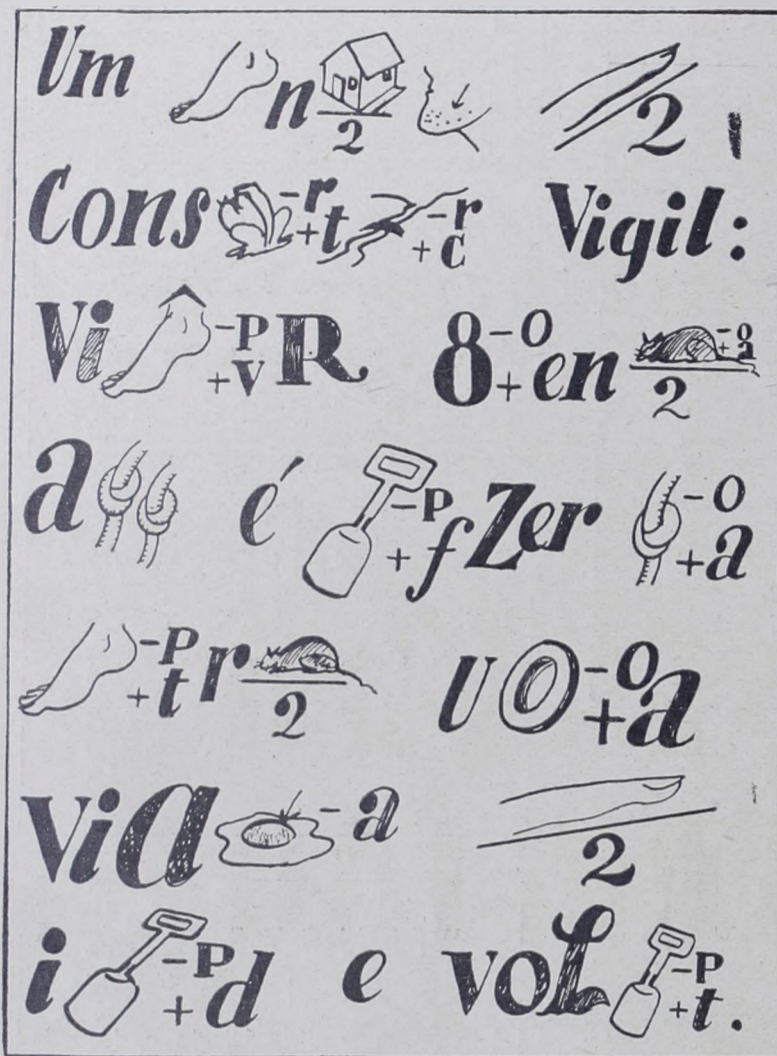 Um n 2 2
Cons -r +t -r +c Vigil:
Vi -P +v R 8 -O +en -o +a 2
a é -P +f Zer -O +a
-P +t r 2 U -O +a
Via -a 2
i -P +d e voL -P +t.